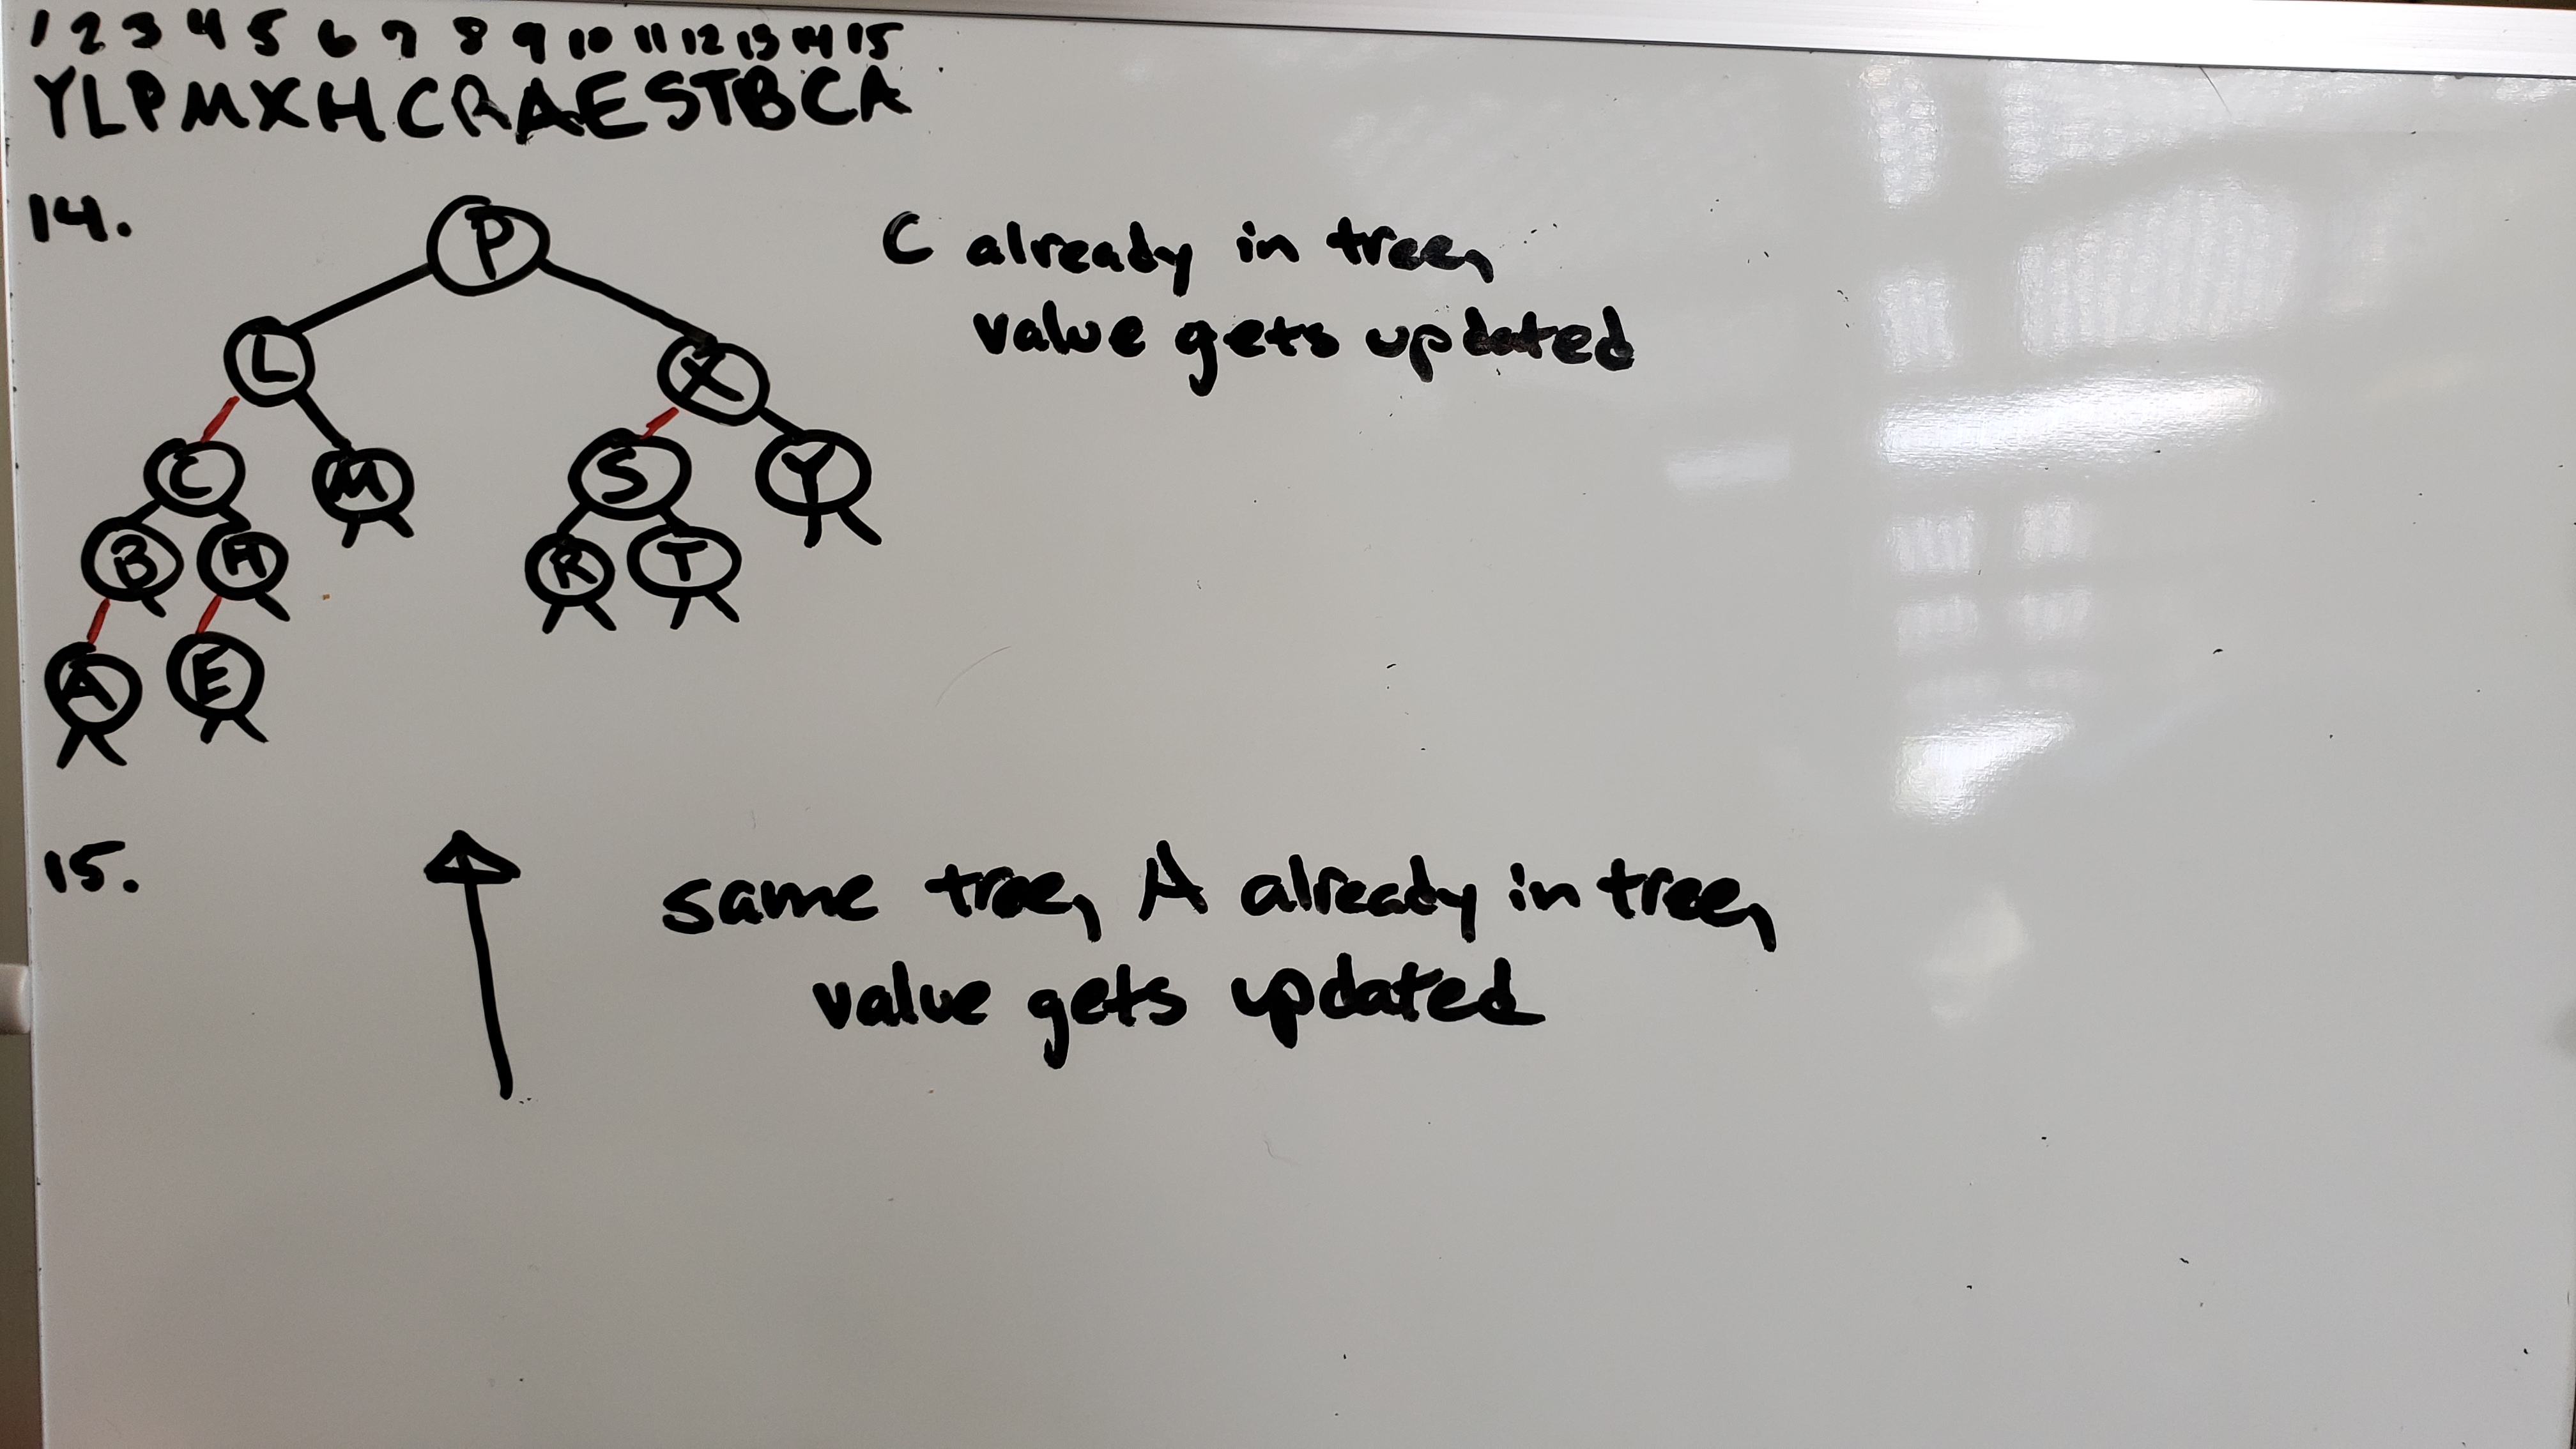 1 2 3 4 5 6 7 8 9 10 11 12 13 14 15
Y L P M X H C R A E S T B C A
14.
P
C already in tree,
value gets updated
L X
C M S Y
B H R T
A E
15.
same tree, A already in tree,
value gets updated